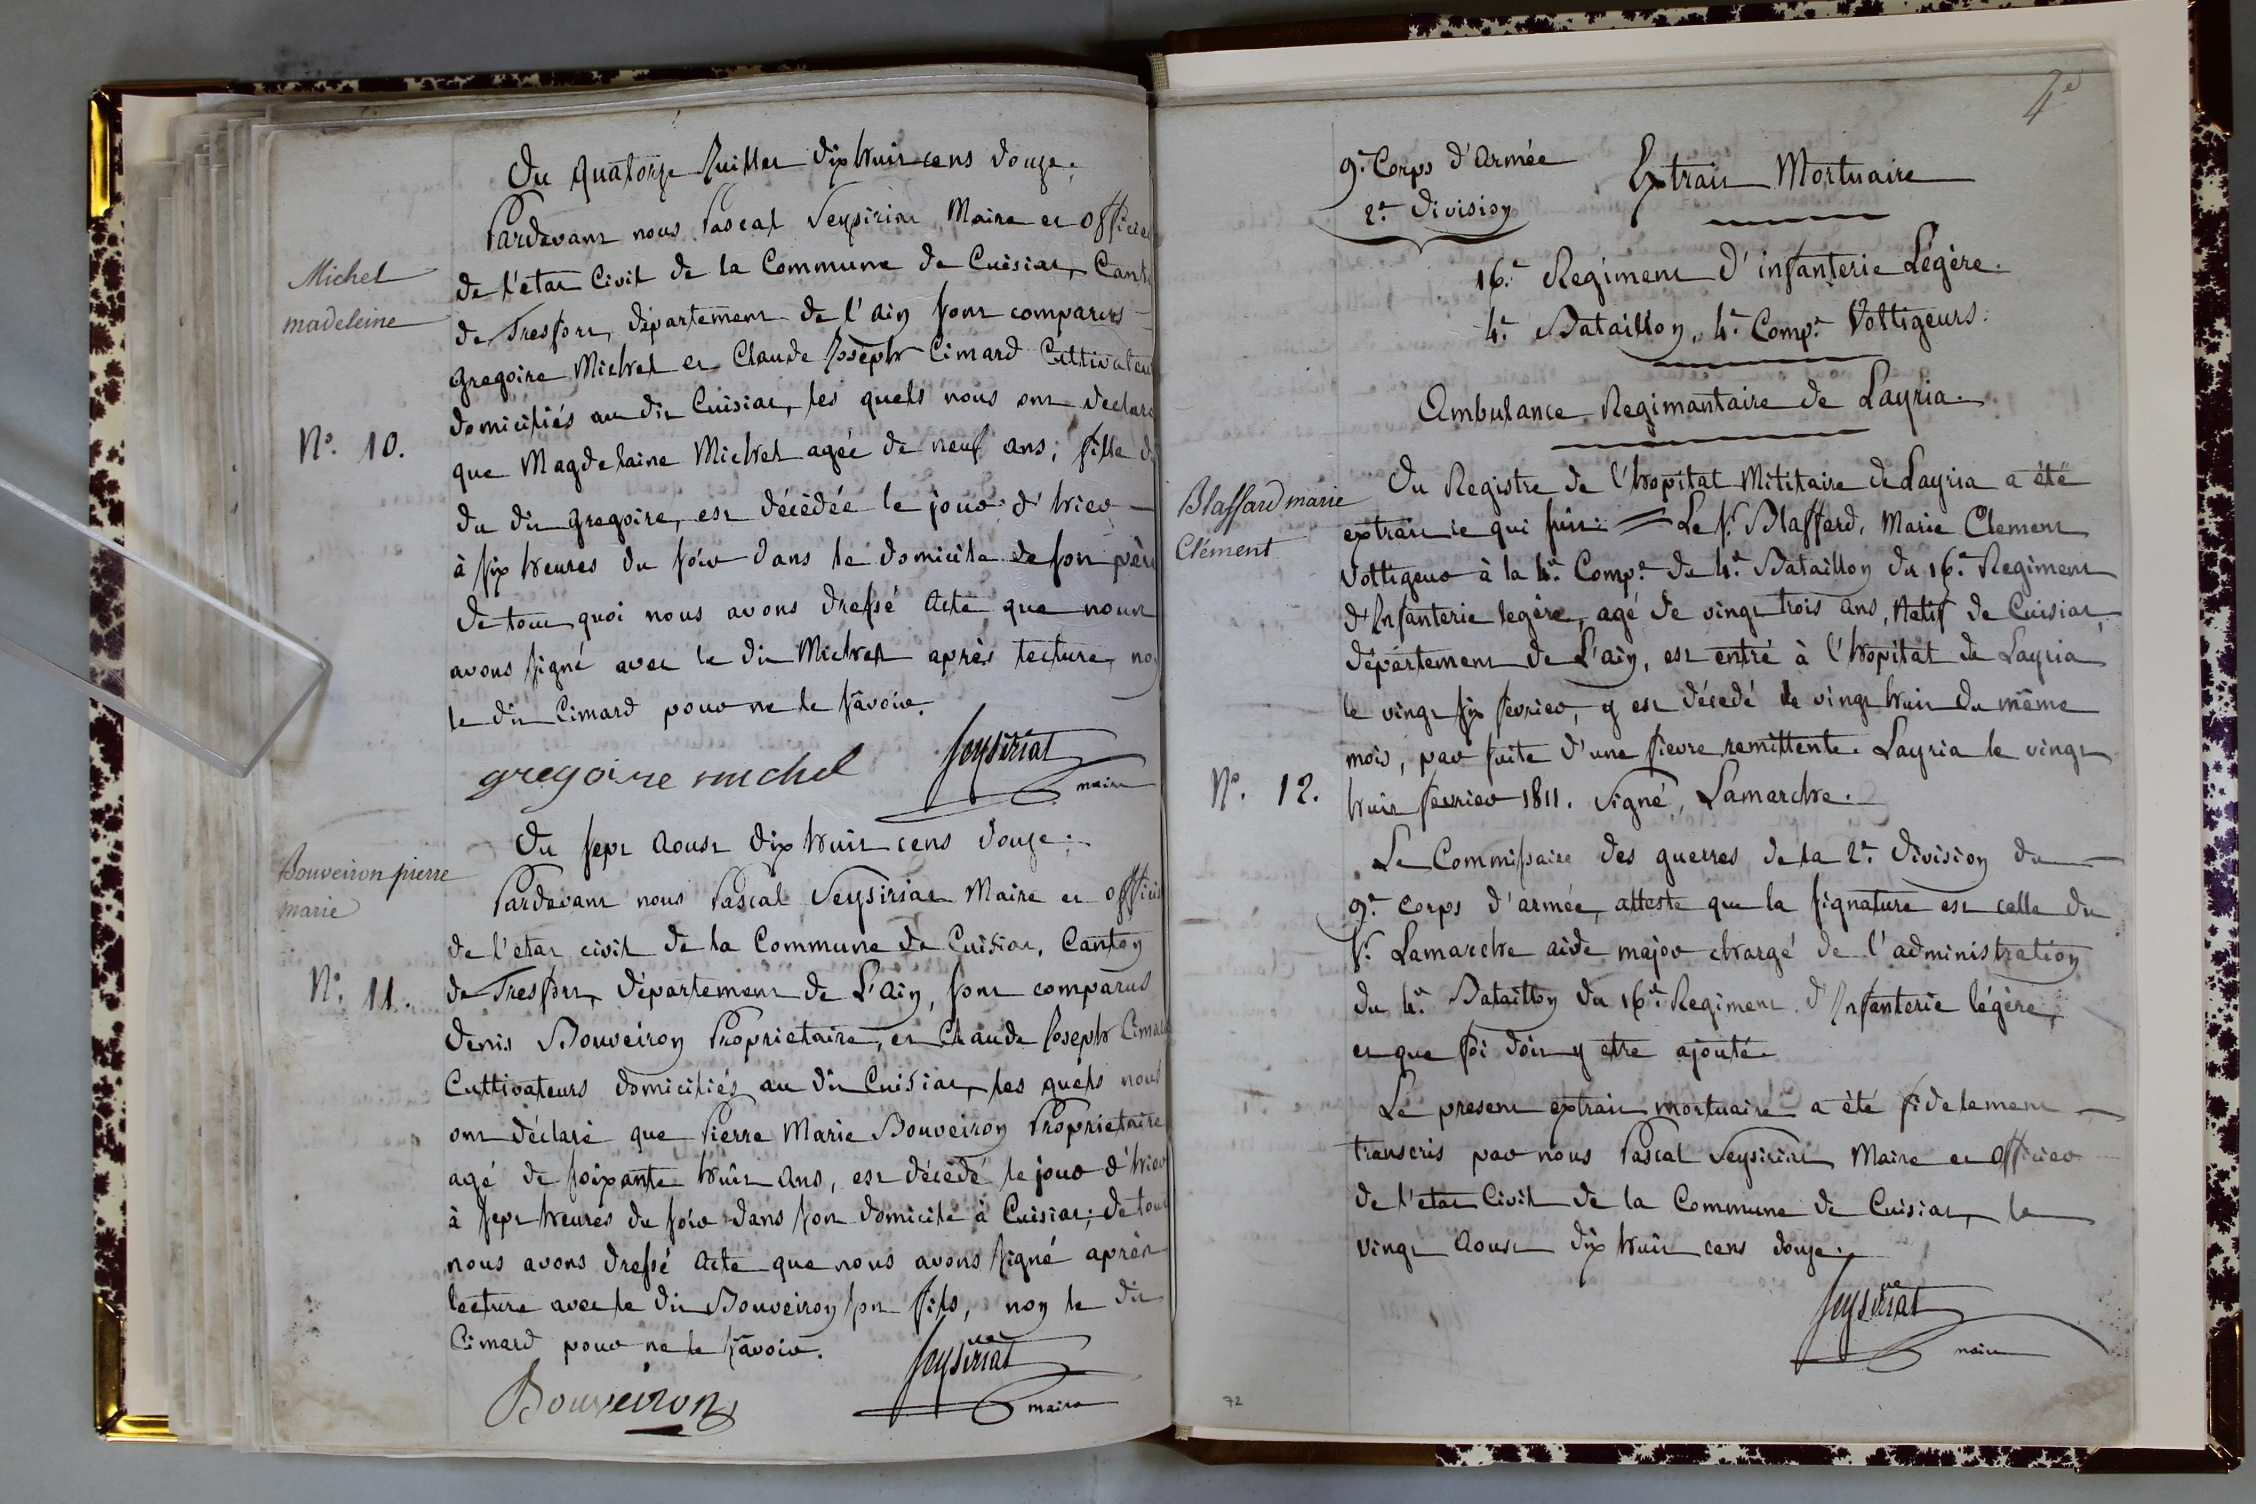 Du quatorze Juillet dix huit cens douze.
Pardevant nous Pascal Seysiriat Maire et Officier
Michel
madeleine
de l'etat Civil de la Commune de Cuisiat, Cant
de Tresfort, département de l'ain sont comparus
gregoire Michel et Claude Joseph Cimard Cultivateu
domiciliés au dit Cuisiat, les quels nous ont declaré
N.º 10.
que Magdelaine Michel agée de neuf ans, fille d
du dit gregoire, est décédée le jour d'hier
à six heures du soir dans le domicile de son père
de tout quoi nous avons dressé acte que nous
avons signé avec le dit Michel après lecture, no
le dit Cimard pour ne le sçavoir.
gregoire michel Seysiriat
maire
Du sept Aoust dix huit cens douze.
Bouveiron pierre
marie
Pardevant nous Pascal Seysiriat Maire et officie
de l'etat civil de la Commune de Cuisiat, Canton
N.º 11.
de Tresfort, département de L'ain, sont comparus
denis Bouveiron Proprietaire, et Claude Joseph Cimar
Cultivateurs domiciliés au dit Cuisiat, les quels nous
ont déclaré que Pierre Marie Bouveiron Proprietaire
agé de soixante huit ans, est décedé le jour d'hier
à sept heures du soir dans son domicile à Cuisiat; de tou
nous avons dressé acte que nous avons signé après
lecture avec le dit Bouveiron son fils, non le dit
Cimard pour ne le sçavoir.
Bouveiron Seysiriat
maire
9.e Corps d'Armée
2.e Division
Extrait Mortuaire
16.e Regiment d'infanterie Légère.
4.e Bataillon, 4.e Comp.e Voltigeurs.
Ambulance Regimantaire de Layria.
Blaffard marie
Clément
Du Registre de l'hopital Militaire de Layria a été
extrait ce qui suit: = Le S.r Blaffard, Marie Clement
Voltigeur à la 4.e Comp.e du 4.e Bataillon du 16.e Regiment
d'Infanterie legère, agé de vingt trois ans, Natif de Cuisiat,
département de L'ain, est entré à l'hopital de Layria
le vingt six fevrier, y est décedé le vingt huit du même
mois, par suite d'une fievre remittente. Layria le vingt
N.º 12.
huit fevrier 1811. Signé, Lamarche.
Le Commissaire des guerres de la 2.e Division du
9.e corps d'armée, atteste que la signature est celle du
S.r Lamarche aide major chargé de l'administration
du 4.e Bataillon du 16.e Regiment d'Infanterie légère,
et que foi doit y etre ajouté.
Le present extrait mortuaire a été fidelement
transcris par nous Pascal Seysiriat Maire et Officier
de l'etat Civil de la Commune de Cuisiat, le
vingt Aoust dix huit cens douze.
Seysiriat
maire
72